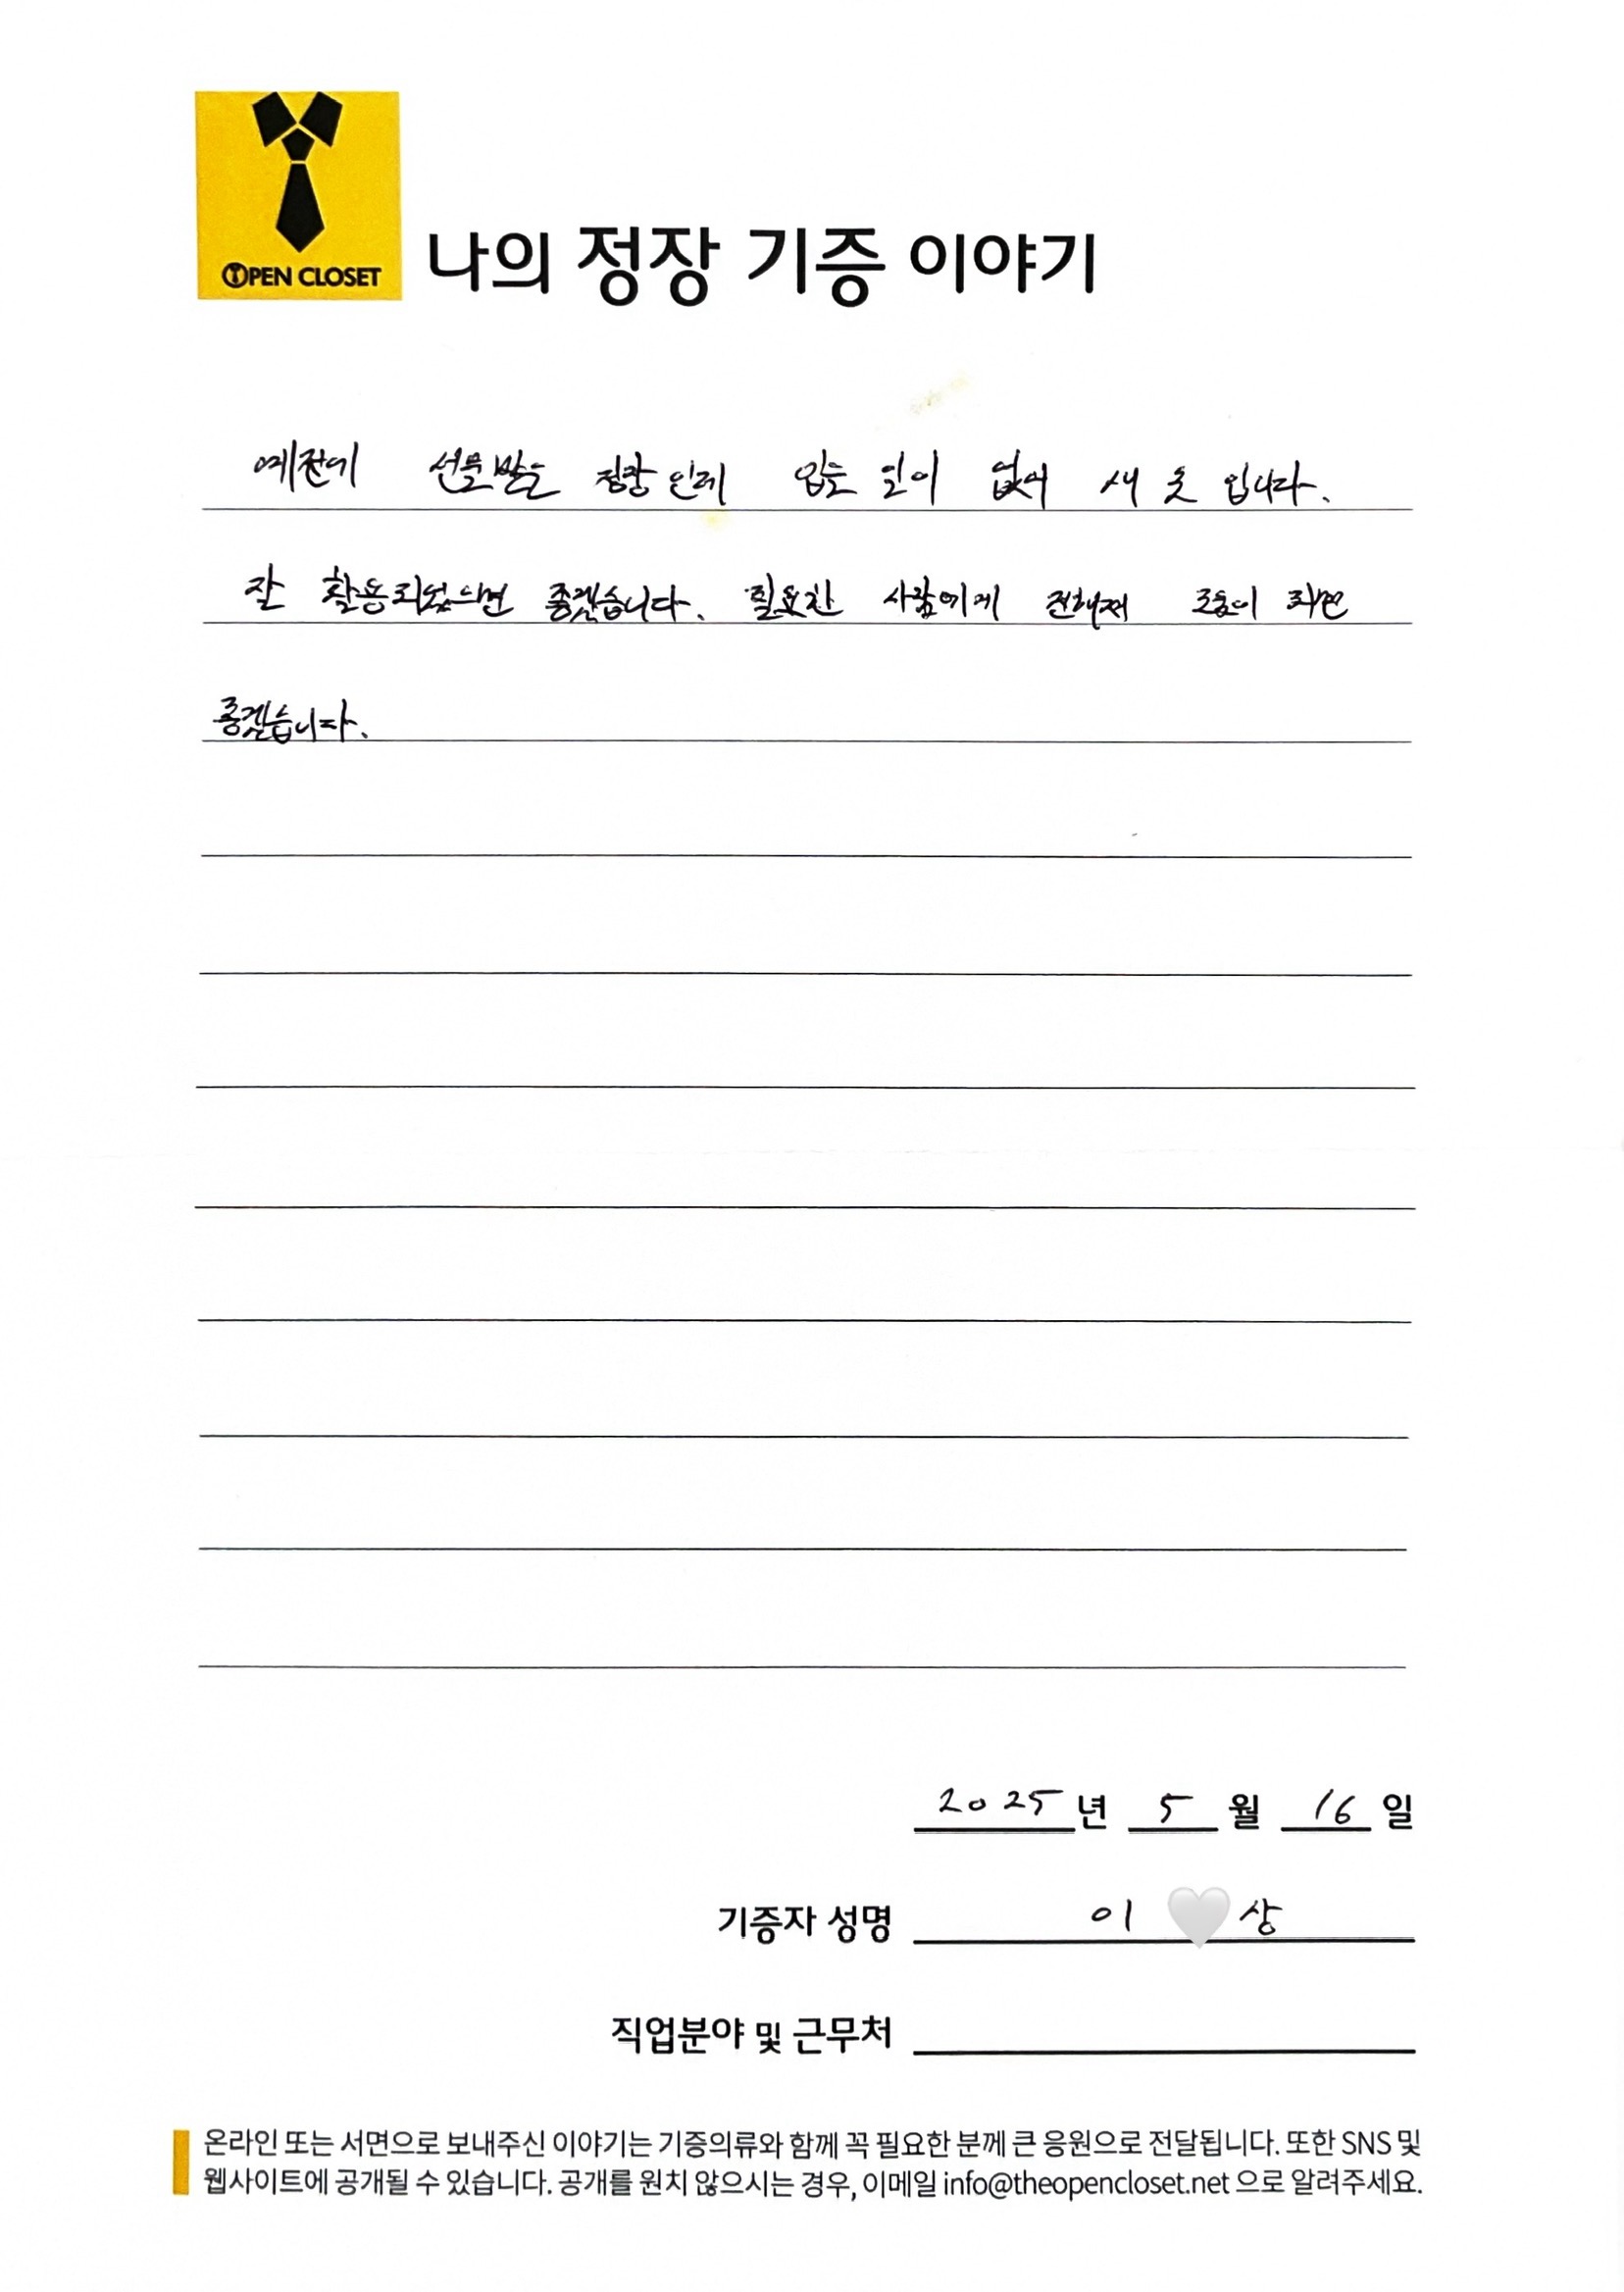 OPEN CLOSET
나의 정장 기증 이야기
예전에 선물받은 정장인데 입을 일이 없어 새 옷 입니다.
잘 활용되었으면 좋겠습니다. 필요한 사람에게 전해져 도움이 되면
좋겠습니다.
2025년 5월 16일
기증자 성명 이 상
직업분야 및 근무처
온라인 또는 서면으로 보내주신 이야기는 기증의류와 함께 꼭 필요한 분께 큰 응원으로 전달됩니다. 또한 SNS 및
웹사이트에 공개될 수 있습니다. 공개를 원치 않으시는 경우, 이메일 info@theopencloset.net 으로 알려주세요.